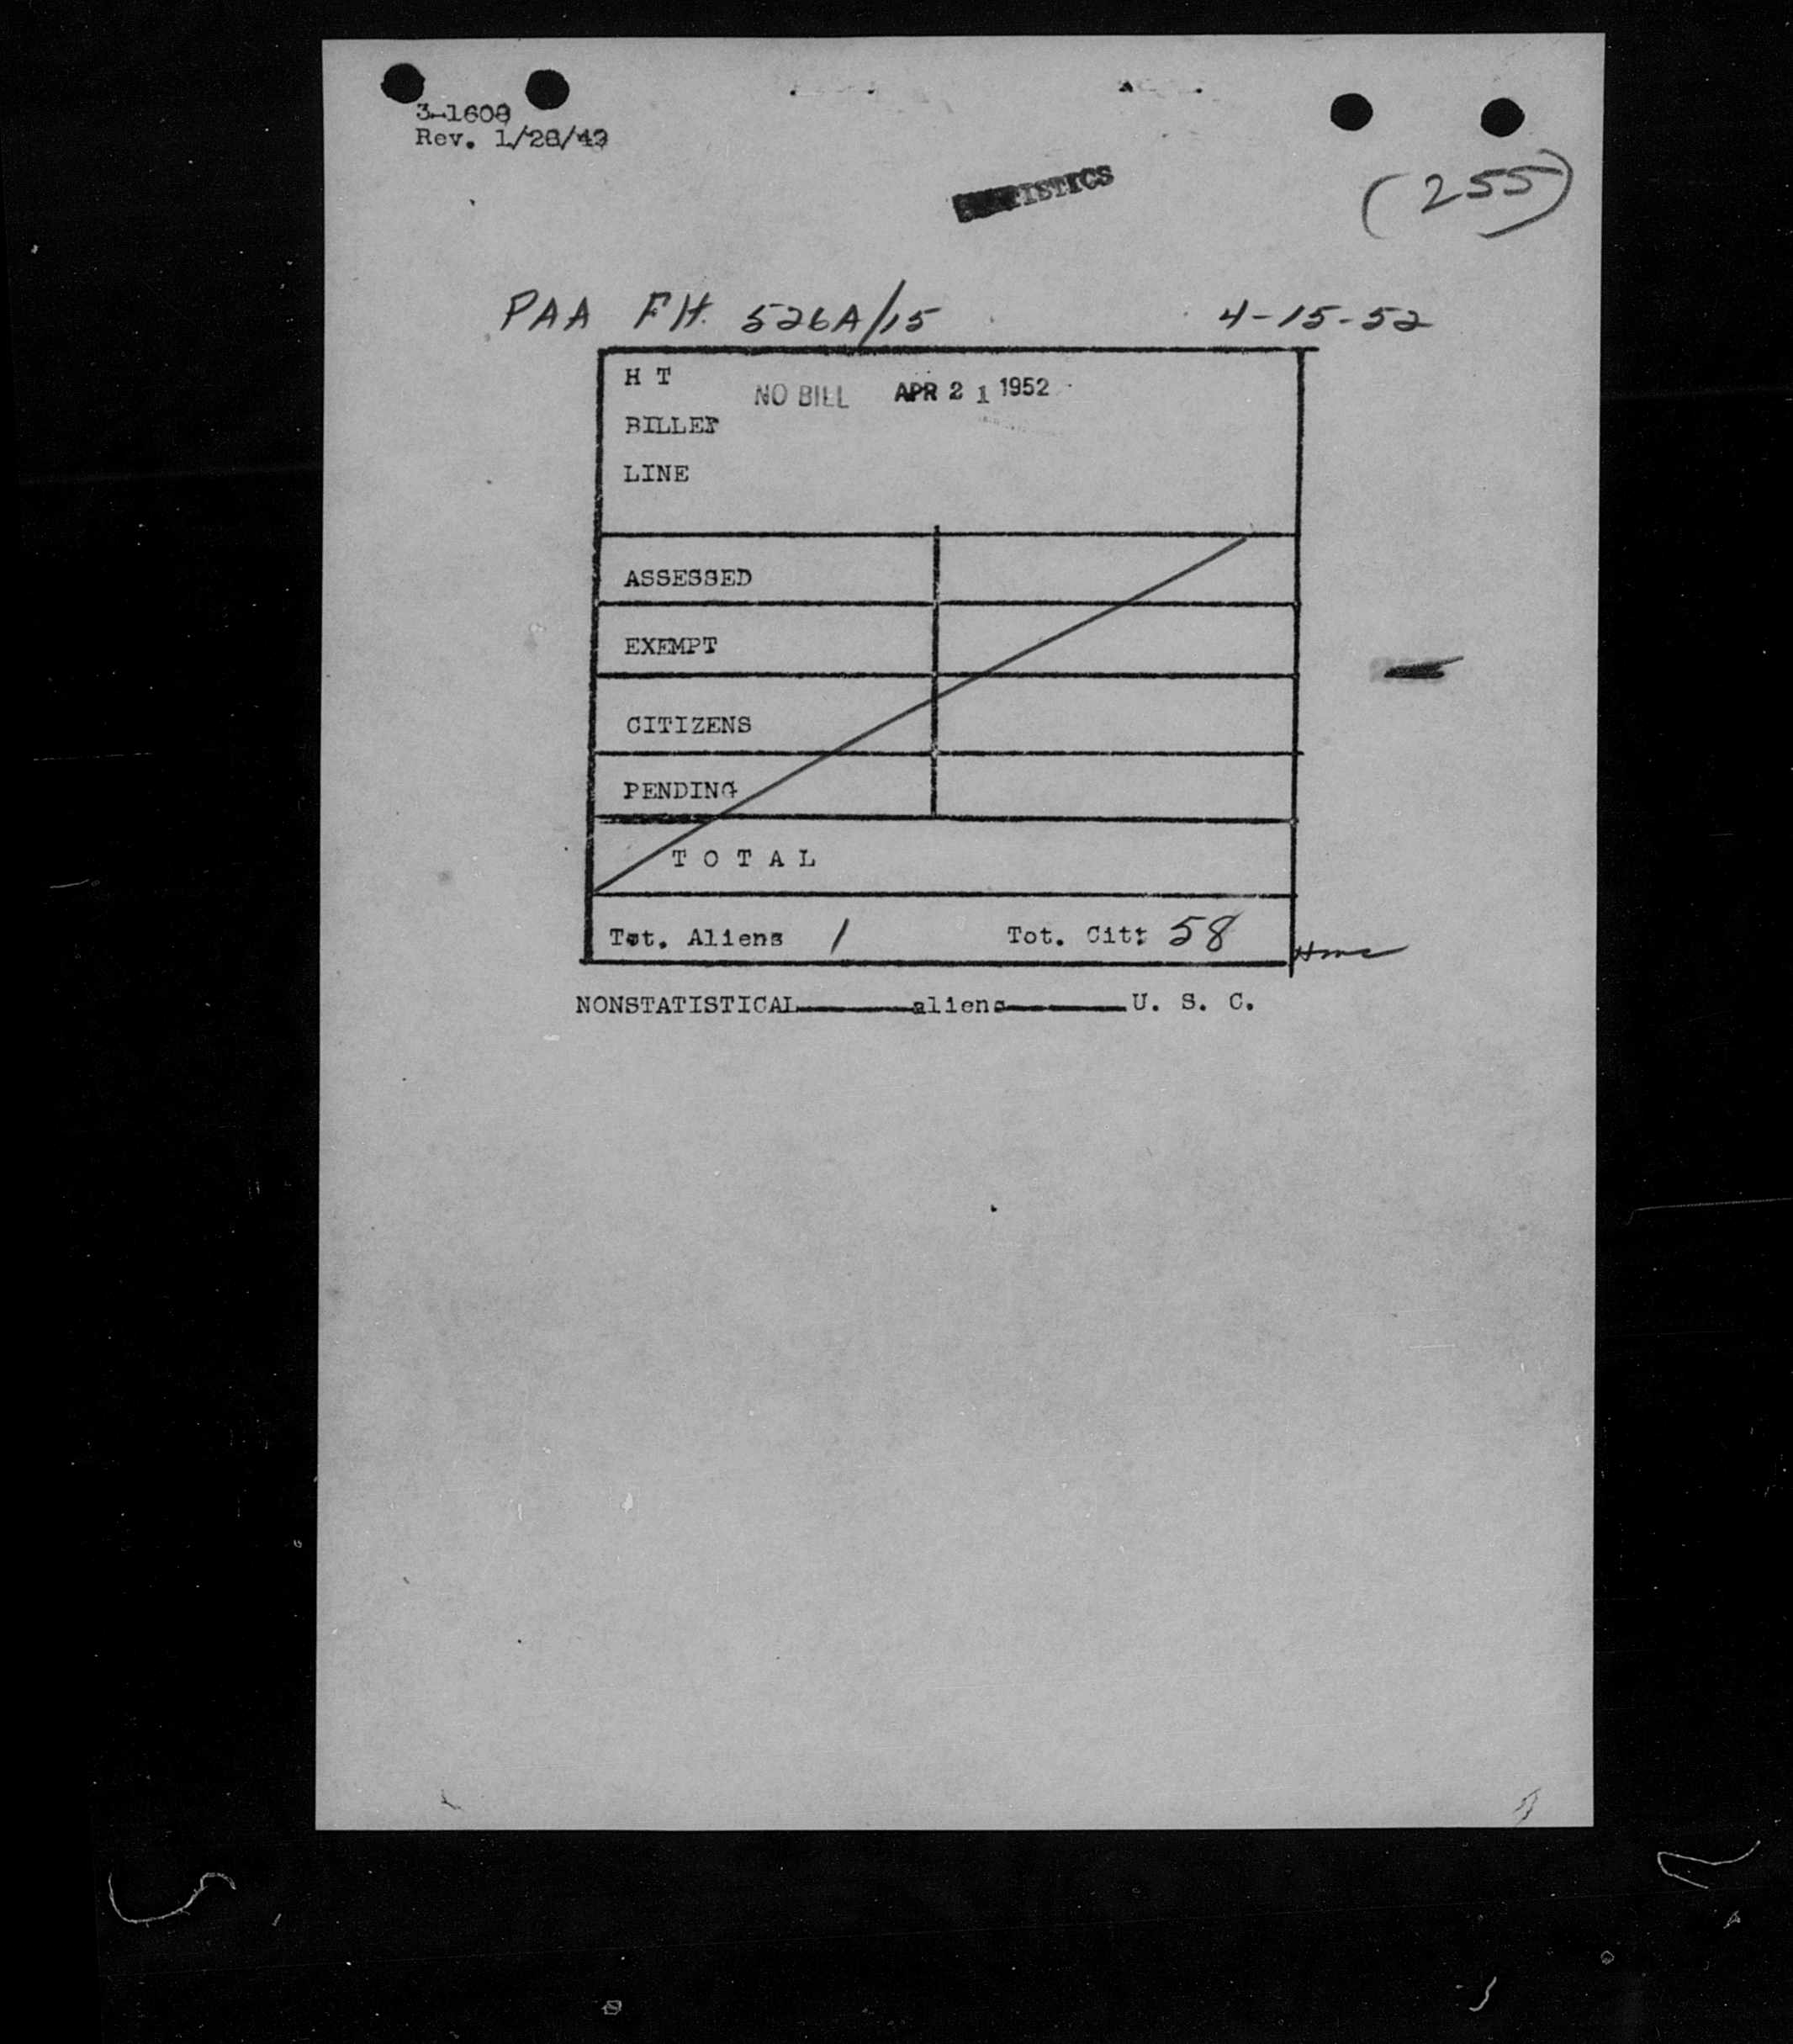 3-1608
Rev. 1/28/49
STATISTICS
(255)
PAA FH. 526A/15 4-15-52
H T
NO BILL APR 21 1952
BILLET
LINE
ASSESSED
EXEMPT
CITIZENS
PENDING
T O T A L
Tot. Aliens 1 Tot. Cit: 58
NONSTATISTICAL aliens U. S. C.